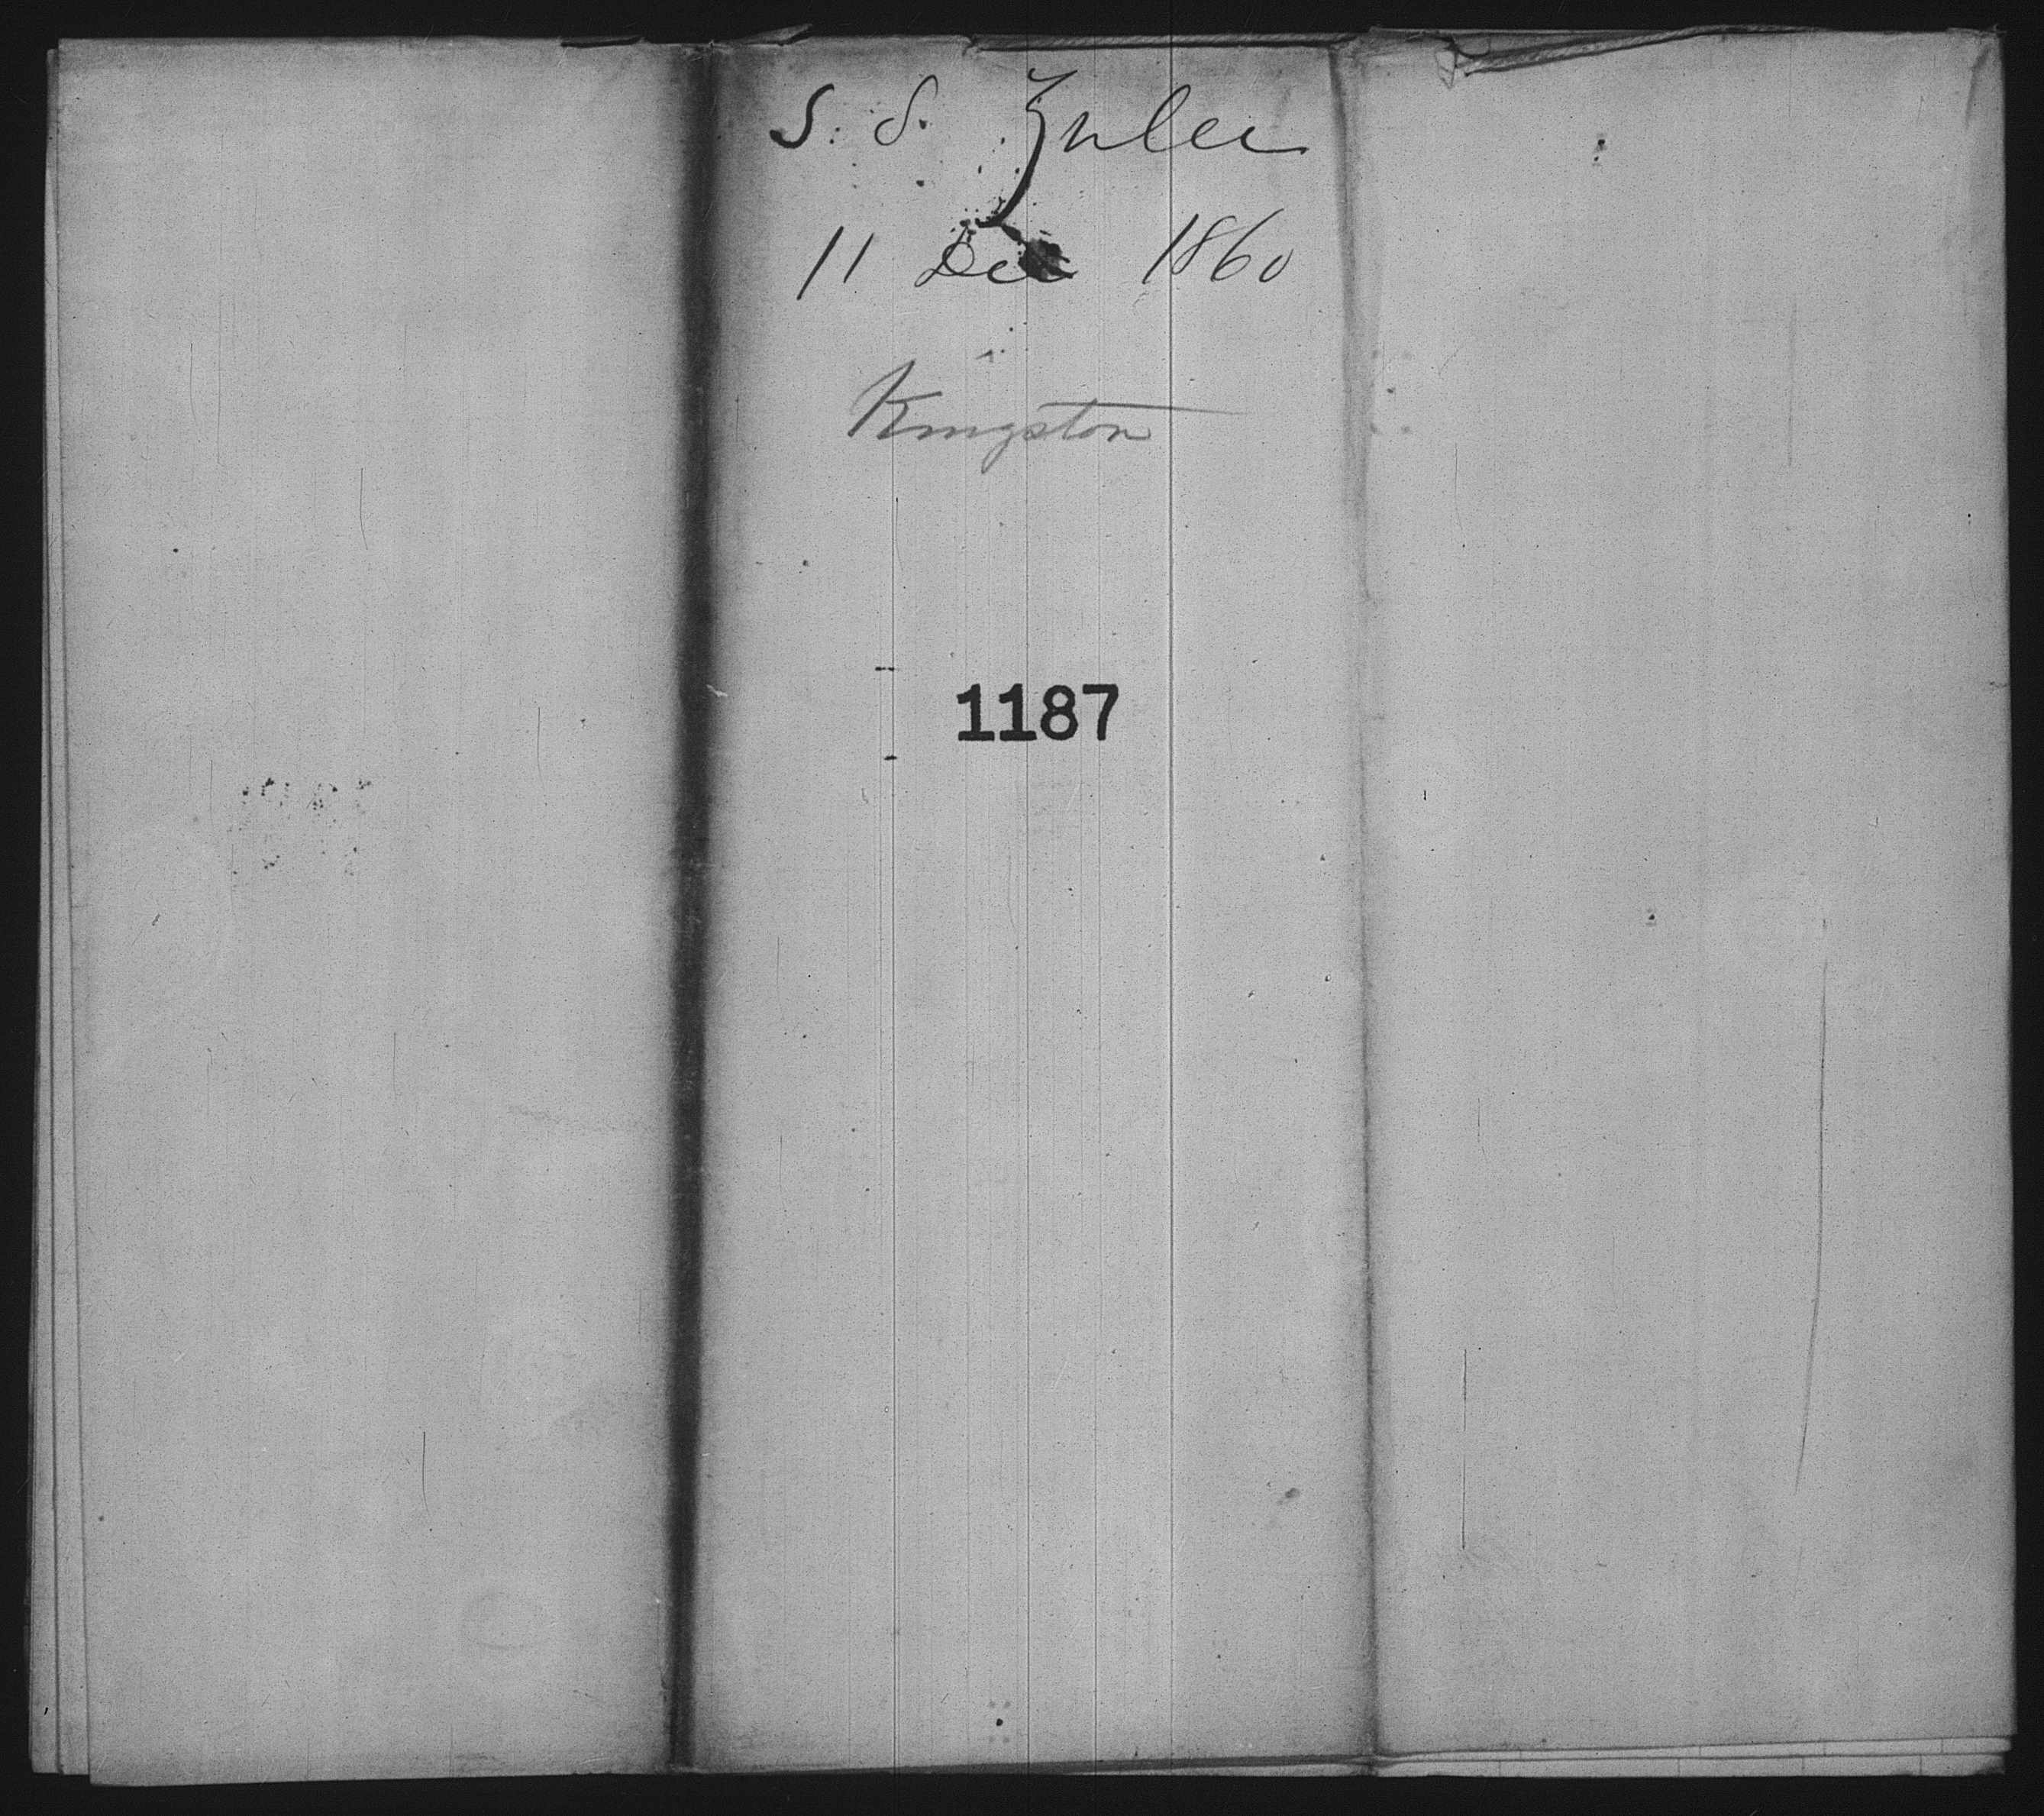 S. S. Zulee
11 Dec 1860
Kingston
1187